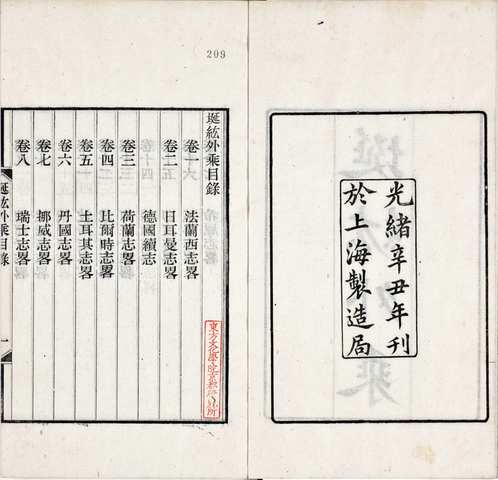 光緒辛丑年刊
於上海製造局
209
埏紘外乘目錄
卷一 法蘭西志畧
卷二 日耳曼志畧
德國續志
卷三 荷蘭志畧
卷四 比爾時志畧
卷五 土耳其志畧
卷六 丹國志畧
卷七 挪威志畧
卷八 瑞士志畧
埏紘外乘目錄
一
東方文化學院京都研究所